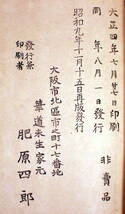 大正四年七月廿七日印刷
同年八月一日發行
非賣品
昭和九年十月十五日再版發行
大阪市北區市之町十七番地
發行兼
印刷者
華道未生家元
肥原四郎